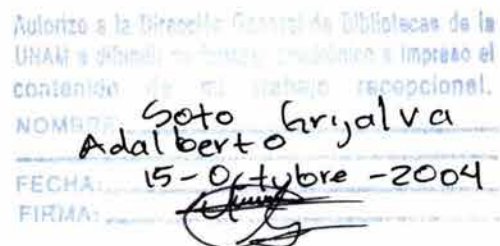 Autorizo a la Dirección General de Bibliotecas de la
UNAM a difundir en formato electrónico e impreso el
contenido de mi trabajo recepcional.
NOMBRE: Soto Grijalva
Adalberto
FECHA: 15-Octubre-2004
FIRMA: